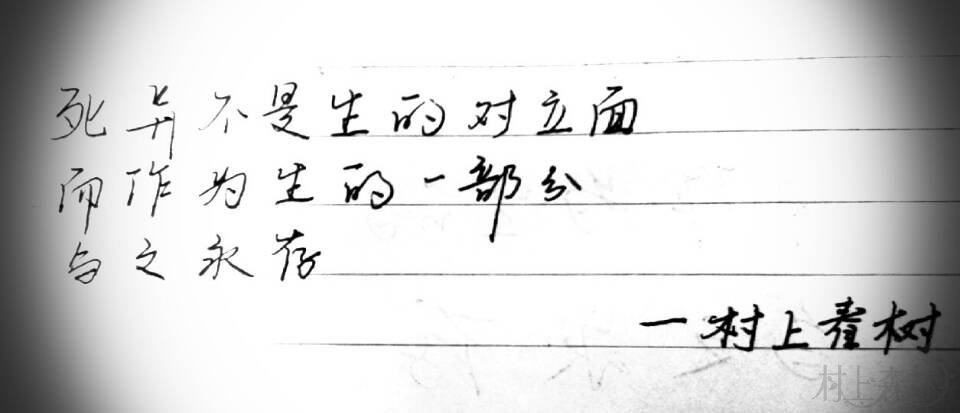 死并不是生的对立面
而作为生的一部分
与之永存
一村上春树
村上春